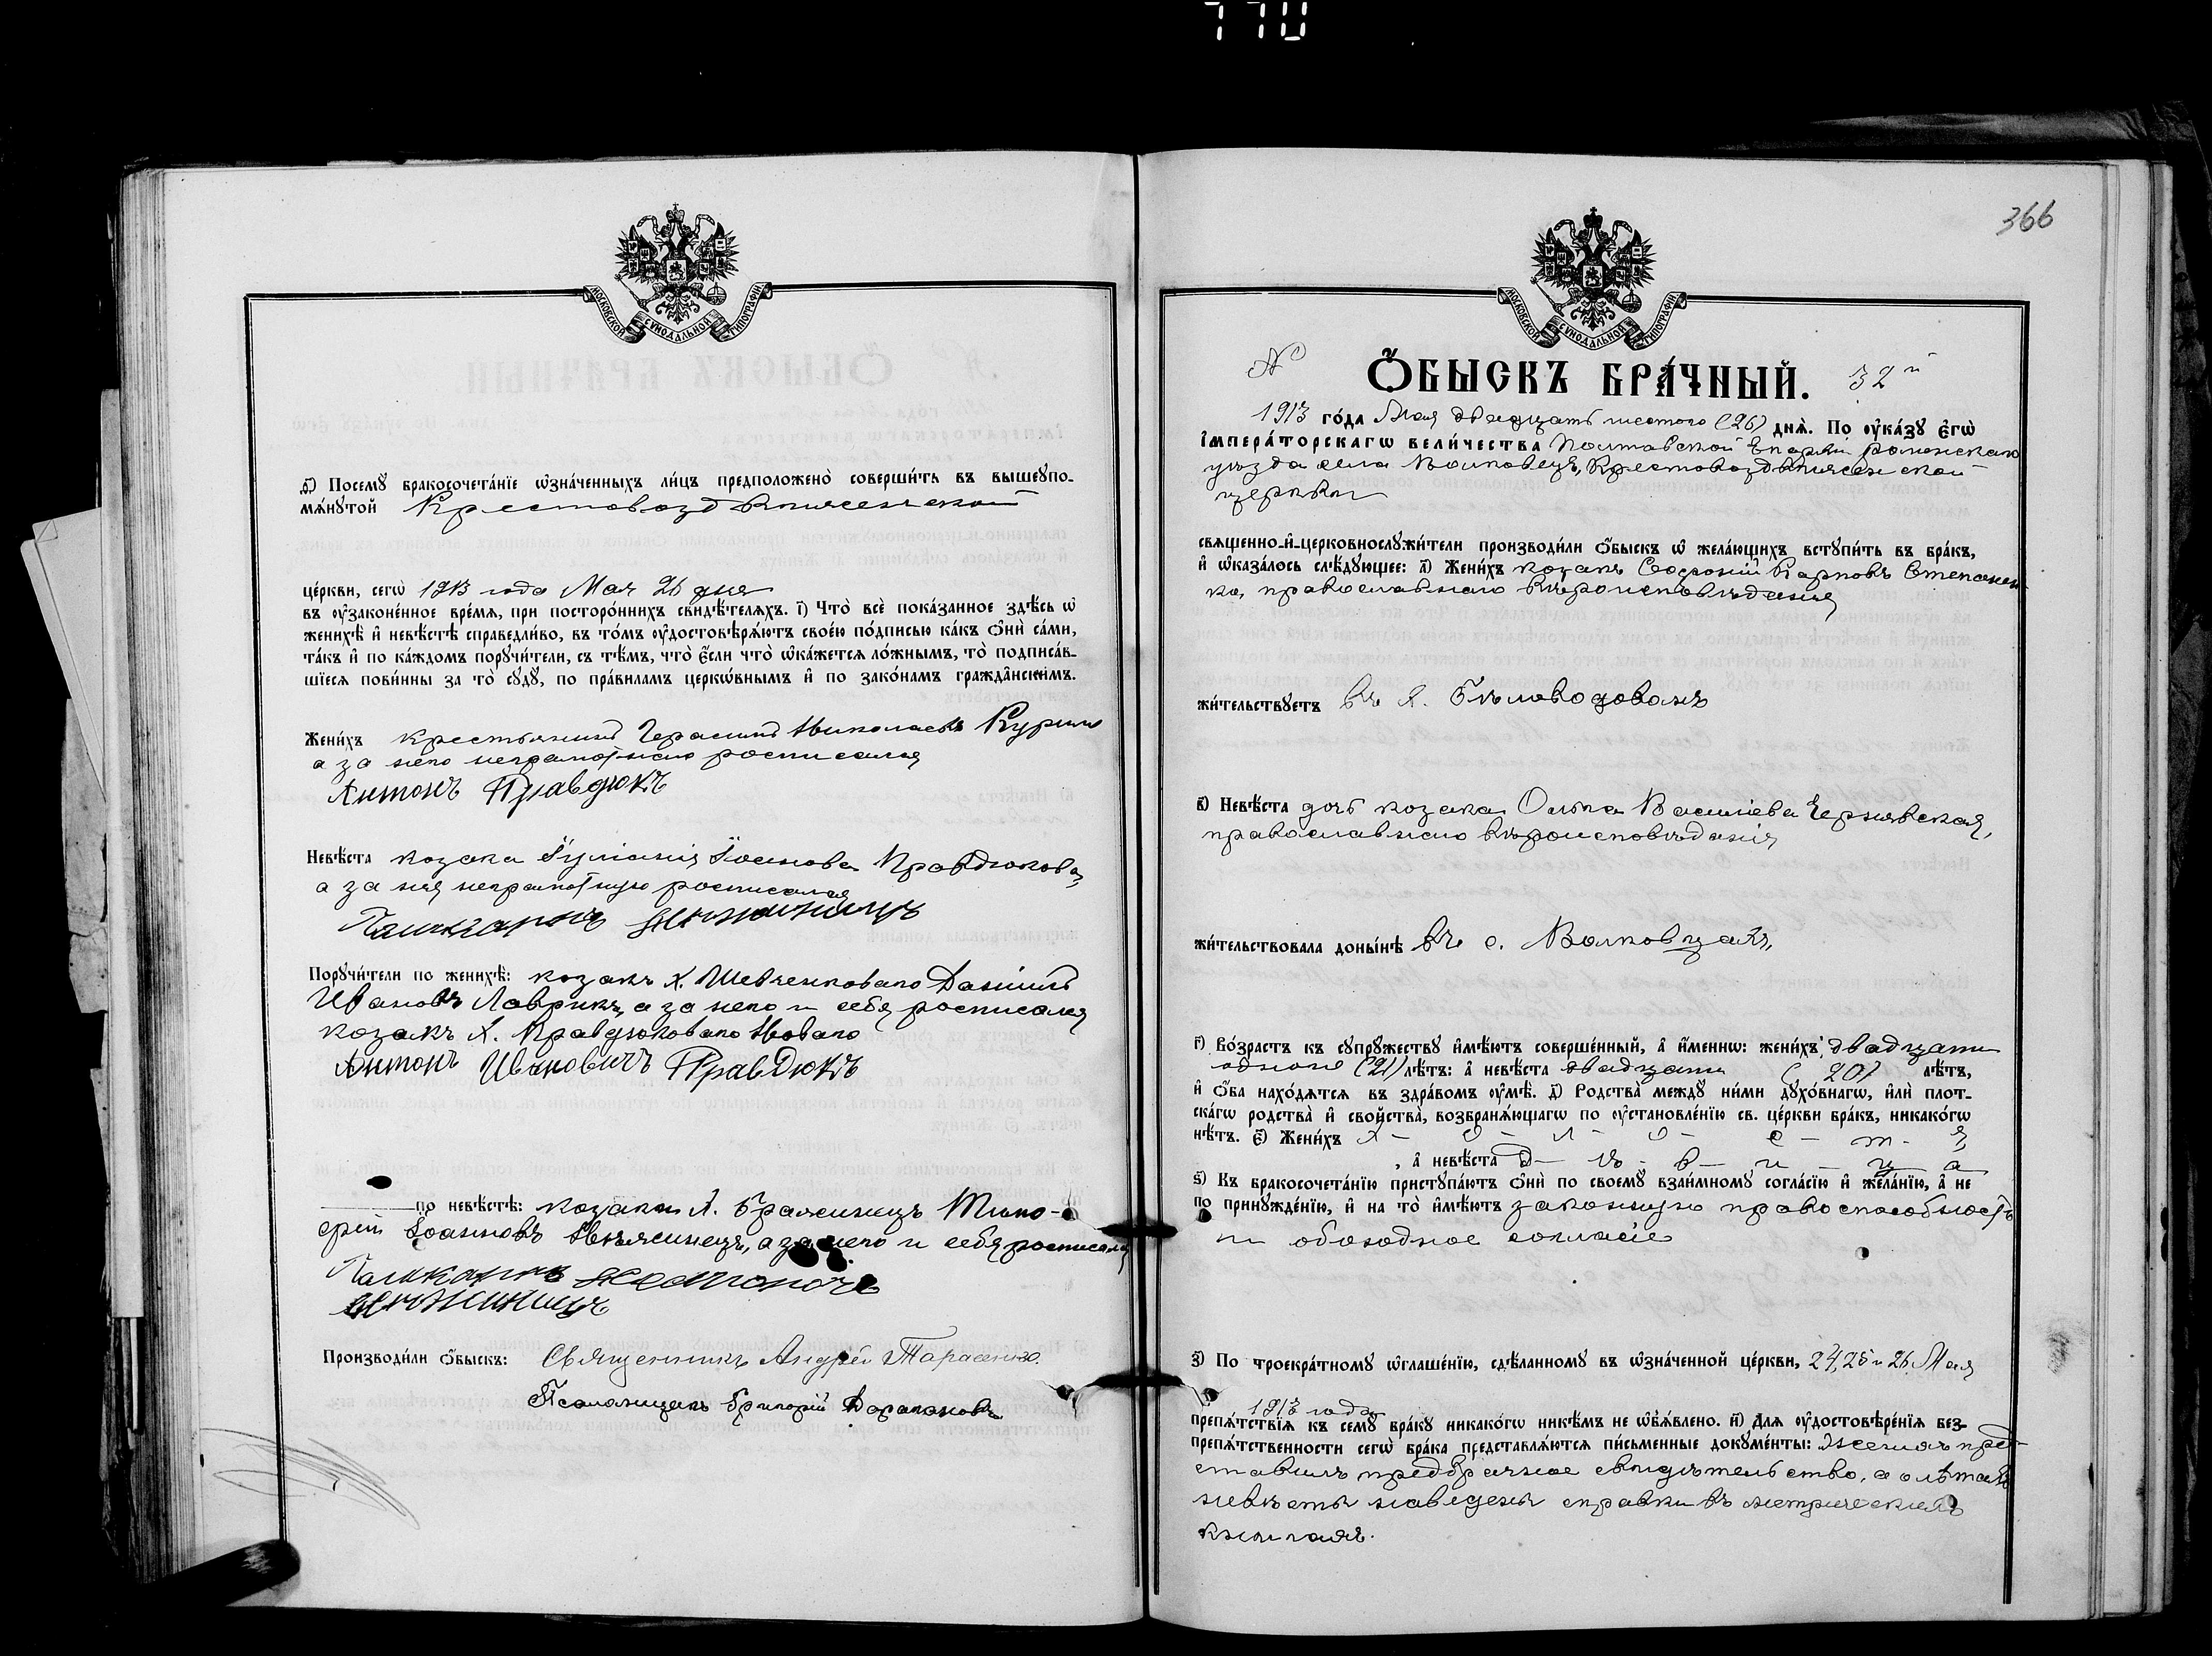 770
МОСКОВСКОЙ СѴНОДАЛЬНОЙ ТИПОГРАФІИ
д҃) Посемꙋ бракосочета́нїе ѡ҆зна́ченныхъ ли́цъ предположено̀ соверши́ть въ вышеꙋпо-
мѧ́нꙋтой Крестовоздвиженской
це́ркви, сегѡ̀ 1913 года Мая 26 дня
въ ᲂу҆законе́нное вре́мѧ, при посторо́ннихъ свидѣ́телѧхъ. і҃) Что̀ всѐ пока́занное здѣ́сь ѡ҆
женихѣ̀ и҆ невѣ́стѣ справедли́во, въ то́мъ ᲂу҆достовѣрѧ́ютъ свое́ю по́дписью ка́къ ѻ҆нѝ са́ми,
та́къ и҆ по ка́ждомъ порꙋчи́тели, съ тѣ́мъ, что̀ є҆́сли что̀ ѡ҆ка́жетсѧ ло́жнымъ, то̀ подписа́в-
шїесѧ пови́нны за то̀ сꙋдꙋ̀, по пра́виламъ церкѡ́внымъ и҆ по зако́намъ гражда̑нскимъ.
Жени́хъ крестьянинъ Герасимъ Николаевъ Курило
а за него неграмотнаго росписался
Антонъ Правдюкъ
Невѣ́ста козачка Іуліанія Іоаннова Правдюкова,
а за нея неграмотную росписался
Порꙋчи́тели по женихѣ̀: козакъ х. Шевченковаго Даніилъ
Ивановъ Лаврикъ, а за него и себя росписался
козакъ х. Правдюковаго Новаго
Антонъ Ивановичъ Правдюкъ
по невѣ́стѣ: козаки х. Бражинецъ Тимо-
фей Іоанновъ а за него и себя росписался
Производи́ли ѻ҆́быскъ: Священникъ Андрей Тарасенко.
Псаломщикъ Григорій
366
МОСКОВСКОЙ СѴНОДАЛЬНОЙ ТИПОГРАФІИ
№ Ѻ҆́БЫСКЪ БРА́ЧНЫЙ. 32й
1913 го́да Мая двадцать шестого (26) днѧ̀. По ᲂу҆ка́зꙋ є҆гѡ̀
і҆мпера́торскагѡ вели́чества Полтавской Епархіи Роменскаго
уѣзда села Волковецъ, Крестовоздвиженской
церкви
свѧщенно-и҆-церковнослꙋжи́тели производи́ли ѻ҆́быскъ ѡ҆ жела́ющихъ встꙋпи́ть въ бра́къ,
и҆ ѡ҆каза́лось слѣ́дꙋющее: а҃) Жени́хъ козакъ Софроній Карповъ Степанен-
ко, православнаго вѣроисповѣданія
жи́тельствꙋетъ въ х. Бѣловодовомъ
в҃) Невѣ́ста дочь козака Ольга Василіева Чернявская,
православнаго вѣроисповѣданія
жи́тельствовала доны́нѣ въ с. Волковцахъ,
г҃) Во́зрастъ къ сꙋпрꙋ́жествꙋ и҆мѣ́ютъ соверше́нный, а҆ и҆́меннѡ: жени́хъ двадцати
одного (21) лѣ́тъ: а҆ невѣ́ста двадцати (20) лѣ́тъ,
и҆ ѻ҆́ба нахо́дѧтсѧ въ здра́вомъ ᲂу҆мѣ̀. д҃) Родства̀ междꙋ ни́ми дꙋхо́внагѡ, и҆лѝ плот-
ска́гѡ родства̀ и҆ сво́йства̀, возбранѧ́ющагѡ по ᲂу҆становле́нїю св. це́ркви бра́къ, никако́гѡ
нѣ́тъ. є҃) Жени́хъ х - о - л - о - с - т - ъ,
, а҆ невѣ́ста д - ѣ - в - и - ц - а
ѕ҃) Къ бракосочета́нїю пристꙋпа́ютъ ѻ҆нѝ по своемꙋ̀ взаи́мномꙋ согла́сїю и҆ жела́нїю, а҆ не
по принꙋжде́нїю, и҆ на то̀ и҆мѣ́ютъ законную правоспособность
и обоюдное согласіе
з҃) По троекра́тномꙋ ѡ҆глаше́нїю, сдѣ́ланномꙋ въ ѡ҆зна́ченной це́ркви, 24, 25 и 26 Мая
1913 года
препѧ́тствїѧ къ семꙋ̀ бра́кꙋ никако́гѡ никѣ́мъ не ѡ҆бъѧ́влено. и҃) Длѧ ᲂу҆достовѣре́нїѧ без-
препѧ́тственности сегѡ̀ бра́ка представлѧ́ютсѧ пи́сьменные докꙋме́нты: женихъ пред-
ставилъ предбрачное свидѣтельство, а о лѣтахъ
невѣсты наведены справки въ метрическихъ
книгахъ.